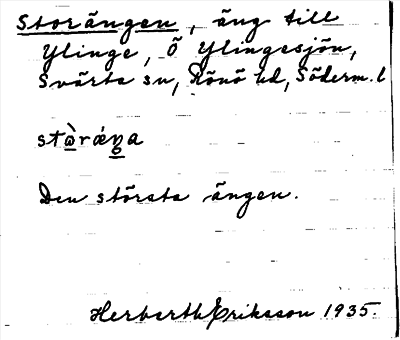 Storängen, äng till
Ylinge, Ö Ylingesjön,
Svärta sn, Rönö hd, Söderm. l
stὼrǽŋa
Den största ängen.
Herberth Eriksson 1935.